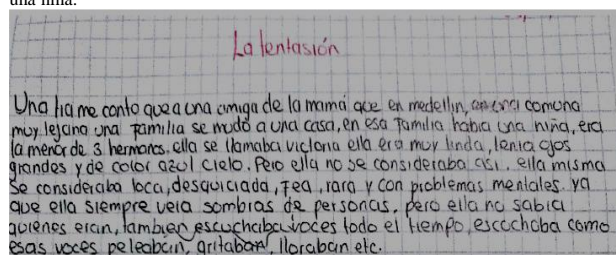 una niña.
La tentasión
Una tia me conto que a una amiga de la mamá que en medellin, en una comuna
muy lejana una familia se mudó a una casa, en esa familia habia una niña, era
la menor de 3 hermanos. ella se llamaba victoria ella era muy linda, tenia ojos
grandes y de color azul cielo. Pero ella no se consideraba asi, ella misma
se consideraba loca, desquiciada, fea, rara y con problemas mentales. ya
que ella siempre veia sombras de personas, pero ella no sabia
quienes eran, tambien escuchaba voces todo el tiempo, escochaba como
esas voces peleaban, gritaban, lloraban etc.